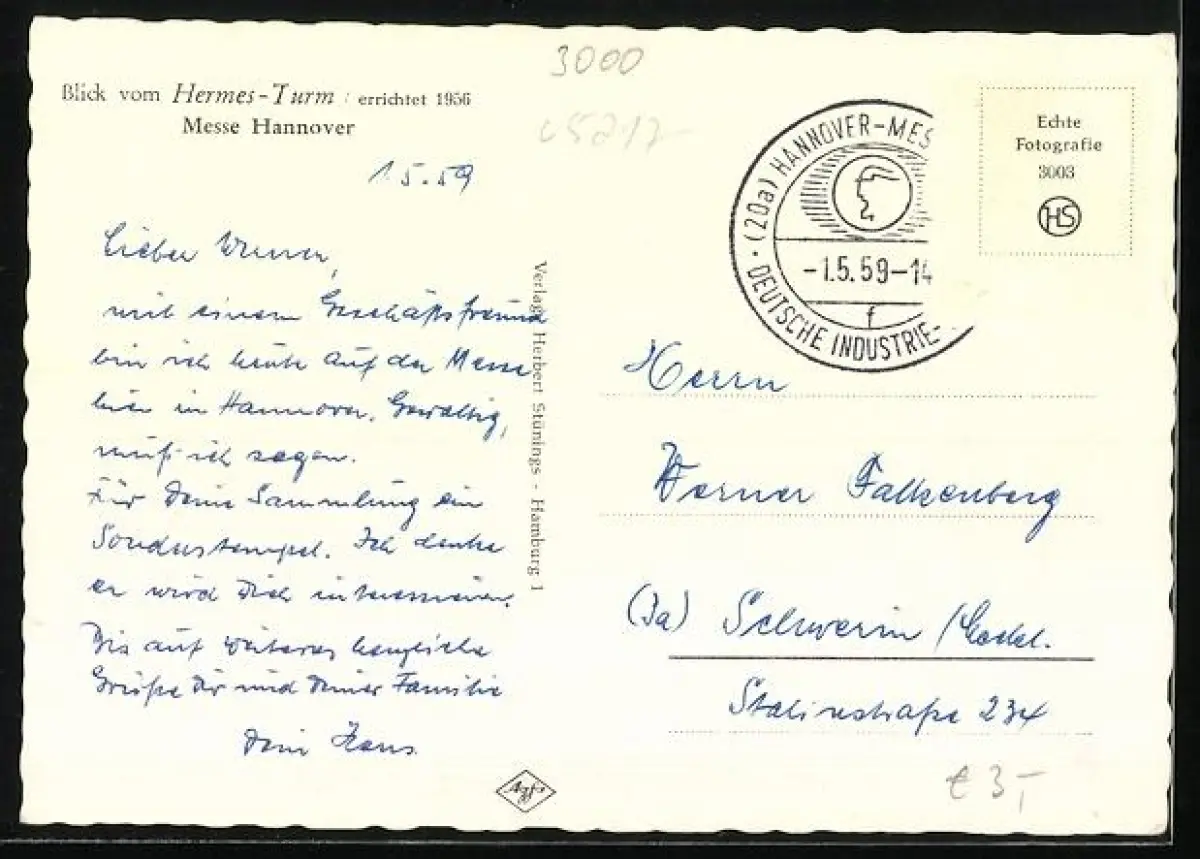 3000
Blick vom Hermes-Turm : errichtet 1956
Messe Hannover
1.5.59
Lieber Werner,
mit einem Geschäftsfreund
bin ich heute auf der Messe
hier in Hannover. Gewaltig,
muß ich sagen.
Für Deine Sammlung ein
Sonderstempel. Ich denke
er wird Dich interessieren.
Bis auf weiteres herzliche
Grüße Dir und Deiner Familie
Dein Hans
Verlag: Herbert Stünings - Hamburg 1
Agfa
(20a) HANNOVER-MES
-1.5.59-14
f
DEUTSCHE INDUSTRIE-
Echte
Fotografie
3003
HS
Herrn
Werner Falkenberg
(3a) Schwerin /Meckl.
Stalinstraße 234
€ 3,-